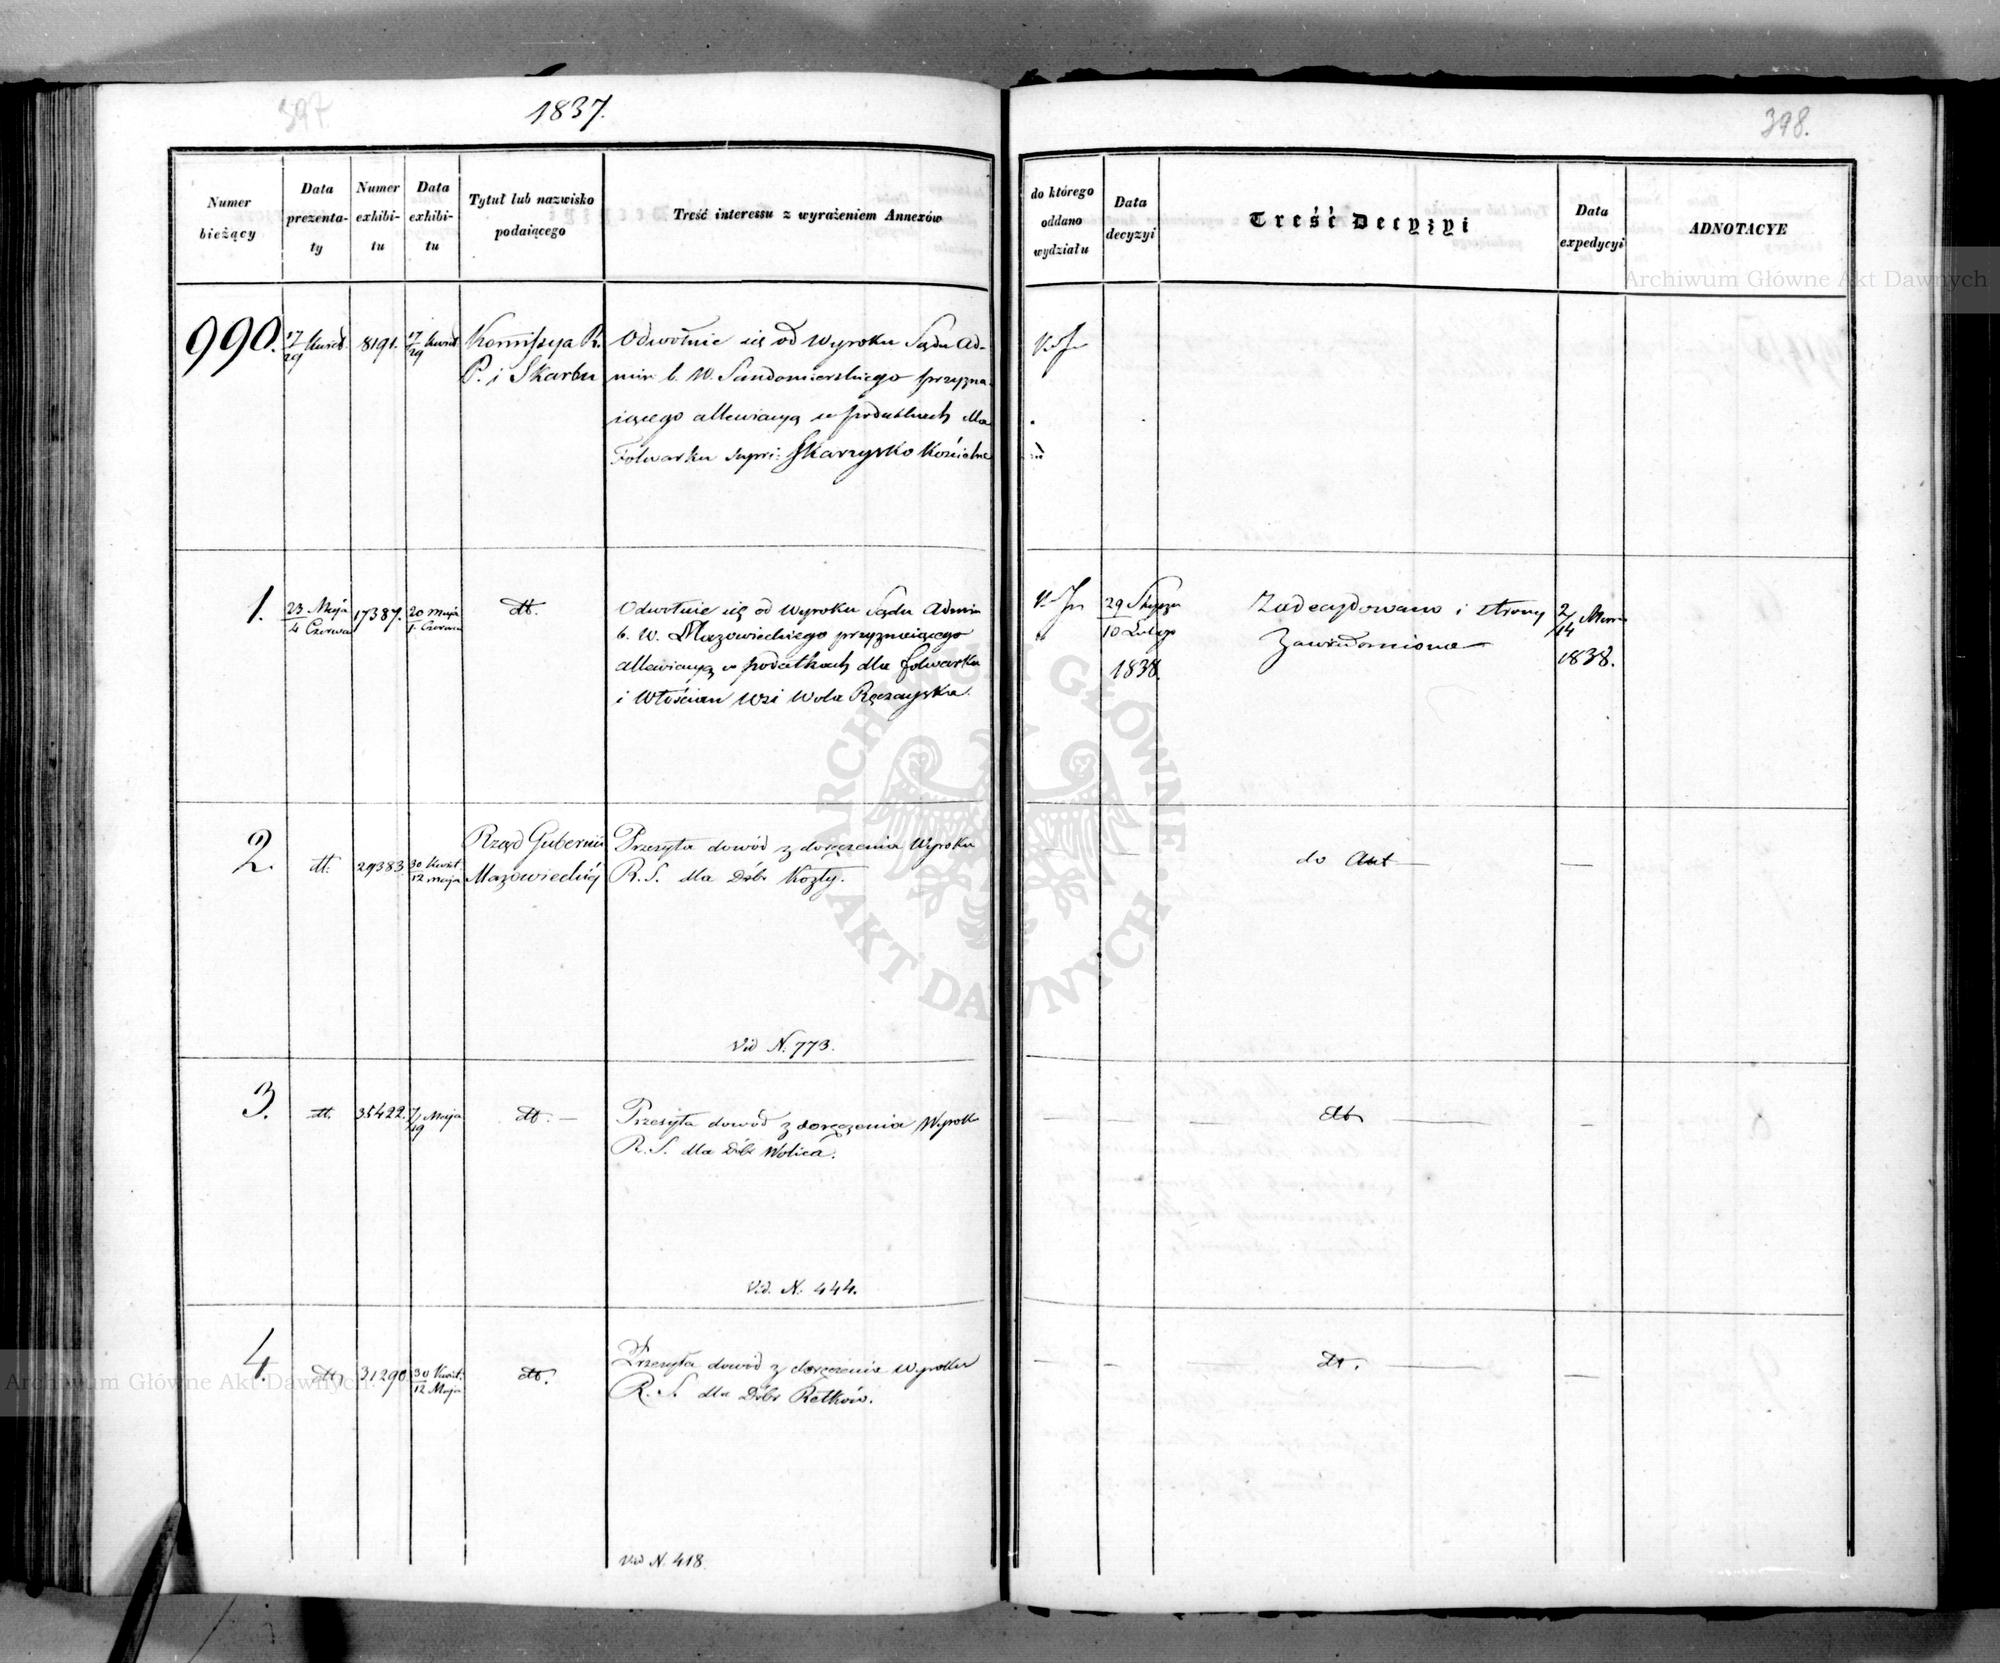 397.
1837.
Numer bieżący
Data prezentaty
Numer exhibitu
Data exhibitu
Tytuł lub nazwisko podaiącego
Treść interessu z wyrażeniem Annexów
990.
17/29 Kwiet.
8191.
17/29 Kwiet
Kommissya R.
P. i Skarbu
Odwołuie się od Wyroku Sądu Ad-
min b. W. Sandomierskiego przyzna-
iącego allewiacyą w podatkach dla
Folwarku Supri: Skarzysko Kościelne
1.
23 Maja
4 Czerwca
17387.
20 Maja
1. Czerwca
dt.
Odwołuie się od Wyroku Sądu Admin
b. W. Mazowieckiego przyznaiącego
allewiacyą w podatkach dla folwarku
i Włościan Wsi Wola Ręczayska.
2.
dt.
29383.
30 Kwiet
12 Maja
Rząd Gubernii
Mazowieckiéj
Przesyła dowód z doręczenia Wyroku
R. S. dla Dóbr Kozły.
Vid N. 773.
3.
dt.
35422.
7/19 Maja
dt. —
Przesyła dowód z doręczenia Wyroku
R. S. dla Dóbr Wolica.
Vid. N. 444.
4.
dt.
31290.
30 Kwiet.
12 Maja
dt.
Przesyła dowód z doręczenia Wyroku
R. S. dla Dóbr Retków.
Vid N. 418.
398.
do którego oddano wydziału
Data decyzyi
Treść Decyzyi
Data expedycyi
ADNOTACYE
29 Stycznia
10 Lutego
1838.
Zadecydowano i strony
Zawiadomiono —
2/14 Marca
1838.
do Akt —
dt
dt.
Archiwum Główne Akt Dawnych
Archiwum Główne Akt Dawnych
ARCHIWUM GŁÓWNE AKT DAWNYCH